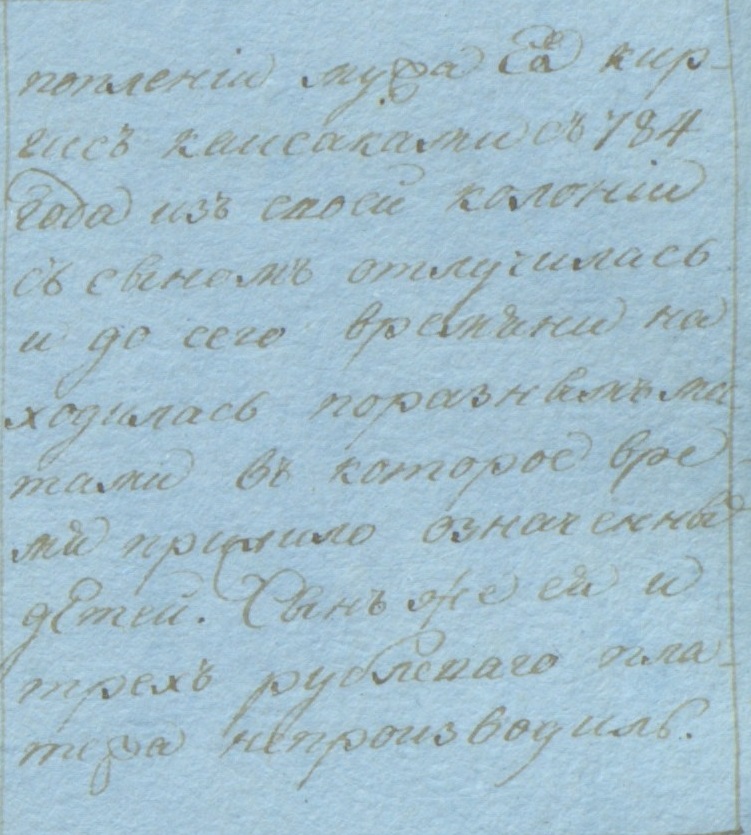 поплѣнiи мужа Ея кир-
гисъ каисаками съ 784
года изъ своей колонiи
съ сыномъ отлучилась
и до сего времѣни на
ходилась поразнымъ ма
тами въ которое вре
мя прижило означенны
дѣтей. Сынъ же ея и
трехъ рублеваго пла-
тежа непроизводилъ.